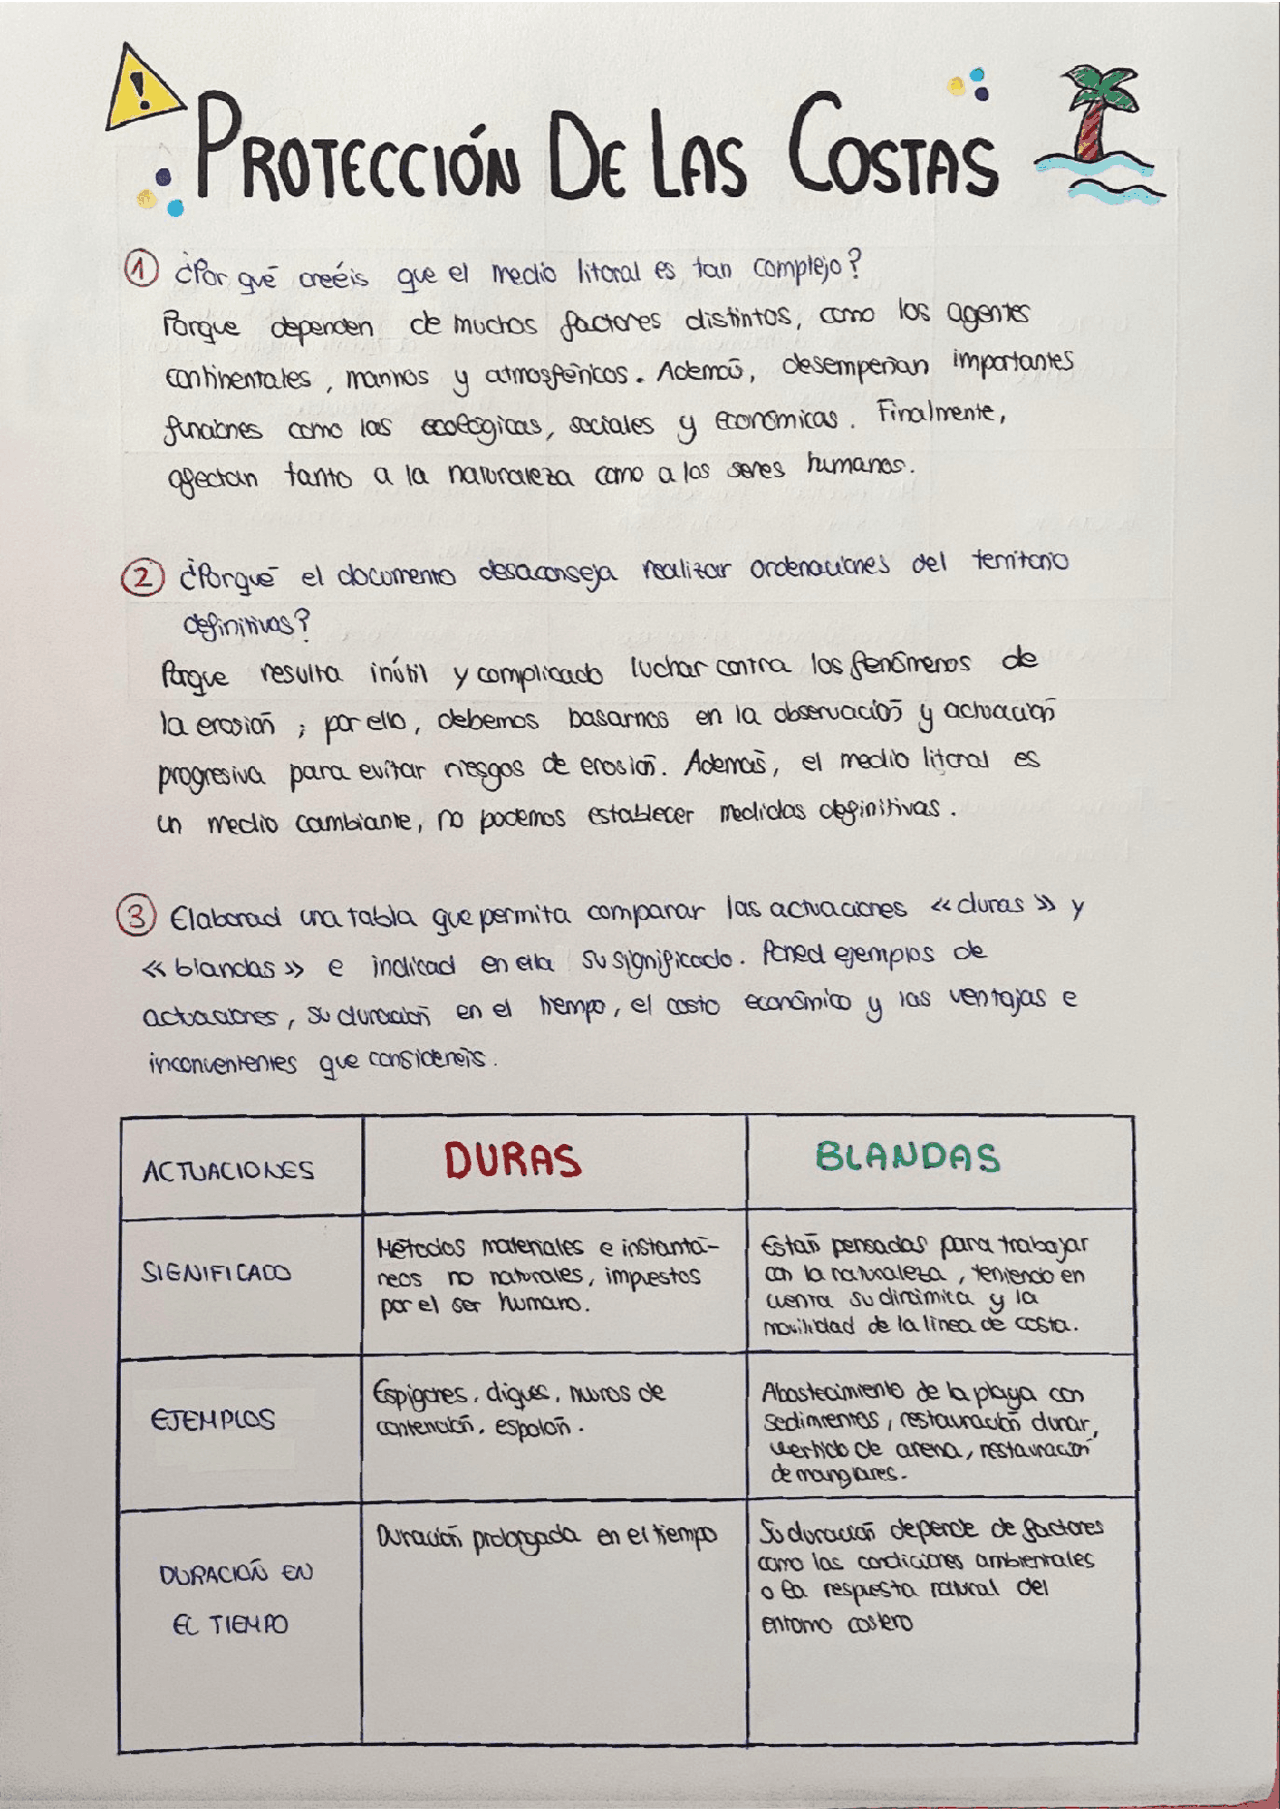 !
PROTECCIÓN DE LAS COSTAS
1 ¿Por qué creéis que el medio litoral es tan complejo?
Porque dependen de muchos factores distintos, como los agentes
continentales, marinos y atmosféricos. Además, desempeñan importantes
funciones como las ecológicas, sociales y económicas. Finalmente,
afectan tanto a la naturaleza como a los seres humanos.
2 ¿Porqué el documento desaconseja realizar ordenaciones del territorio
definitivas?
Porque resulta inútil y complicado luchar contra los fenómenos de
la erosión; por ello, debemos basarnos en la observación y actuación
progresiva para evitar riesgos de erosión. Además, el medio litoral es
un medio cambiante, no podemos establecer medidas definitivas.
3 Elaborad una tabla que permita comparar las actuaciones «duras» y
«blandas» e indicad en ella su significado. Poned ejemplos de
actuaciones, su duración en el tiempo, el costo económico y las ventajas e
inconvenientes que consideréis.
ACTUACIONES DURAS BLANDAS
SIGNIFICADO
Métodos materiales e instantá-
neos no naturales, impuestos
por el ser humano.
Están pensadas para trabajar
con la naturaleza, teniendo en
cuenta su dinámica y la
movilidad de la línea de costa.
EJEMPLOS
Espigones, diques, muros de
contención, espolón.
Abastecimiento de la playa con
sedimentos, restauración dunar,
vertido de arena, restauración
de manglares.
DURACIÓN EN
EL TIEMPO
Duración prolongada en el tiempo
Su duración depende de factores
como las condiciones ambientales
o la respuesta natural del
entorno costero